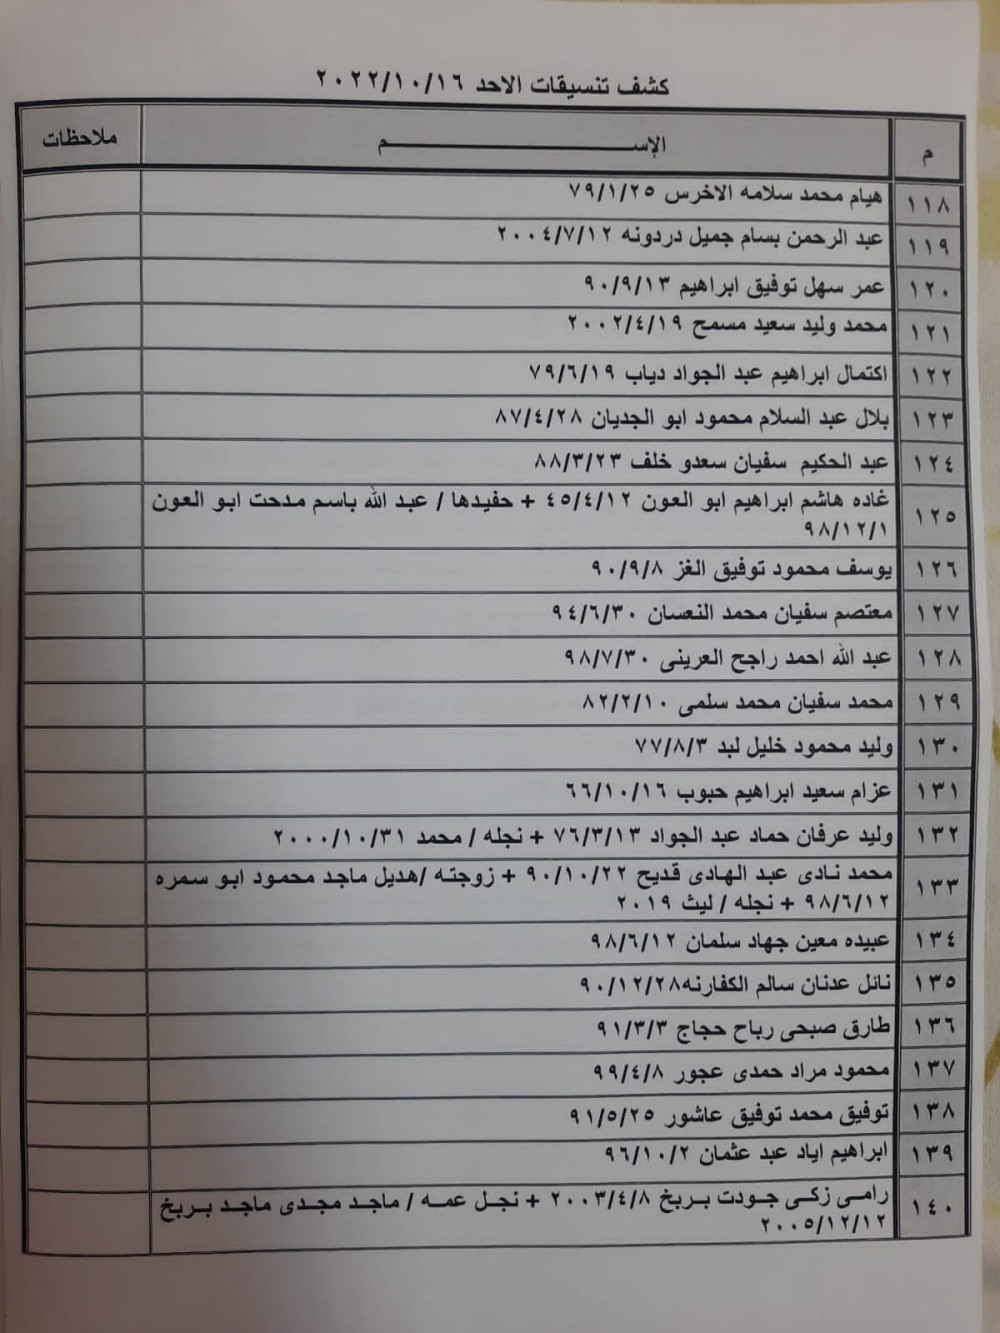 كشف تنسيقات الاحد ٢٠٢٢/١٠/١٦
م الإســــــــــــم ملاحظات
١١٨ هيام محمد سلامه الاخرس ٧٩/١/٢٥
١١٩ عبد الرحمن بسام جميل دردونه ٢٠٠٤/٧/١٢
١٢٠ عمر سهل توفيق ابراهيم ٩٠/٩/١٣
١٢١ محمد وليد سعيد مسمح ٢٠٠٢/٤/١٩
١٢٢ اكتمال ابراهيم عبد الجواد دياب ٧٩/٦/١٩
١٢٣ بلال عبد السلام محمود ابو الجديان ٨٧/٤/٢٨
١٢٤ عبد الحكيم سفيان سعدو خلف ٨٨/٣/٢٣
١٢٥ غاده هاشم ابراهيم ابو العون ٤٥/٤/١٢ + حفيدها / عبد الله باسم مدحت ابو العون
٩٨/١٢/١
١٢٦ يوسف محمود توفيق الغز ٩٠/٩/٨
١٢٧ معتصم سفيان محمد النعسان ٩٤/٦/٣٠
١٢٨ عبد الله احمد راجح العرينى ٩٨/٧/٣٠
١٢٩ محمد سفيان محمد سلمى ٨٢/٢/١٠
١٣٠ وليد محمود خليل لبد ٧٧/٨/٣
١٣١ عزام سعيد ابراهيم حبوب ٦٦/١٠/١٦
١٣٢ وليد عرفان حماد عبد الجواد ٧٦/٣/١٣ + نجله / محمد ٢٠٠٠/١٠/٣١
١٣٣ محمد نادى عبد الهادى قديح ٩٠/١٠/٢٢ + زوجته /هديل ماجد محمود ابو سمره
٩٨/٦/١٢ + نجله / ليث ٢٠١٩
١٣٤ عبيده معين جهاد سلمان ٩٨/٦/١٢
١٣٥ نائل عدنان سالم الكفارنه٩٠/١٢/٢٨
١٣٦ طارق صبحى رباح حجاج ٩١/٣/٣
١٣٧ محمود مراد حمدى عجور ٩٩/٤/٨
١٣٨ توفيق محمد توفيق عاشور ٩١/٥/٢٥
١٣٩ ابراهيم اياد عبد عثمان ٩٦/١٠/٢
١٤٠ رامى زكى جودت بربخ ٢٠٠٣/٤/٨ + نجل عمه / ماجد مجدى ماجد بربخ
٢٠٠٥/١٢/١٢